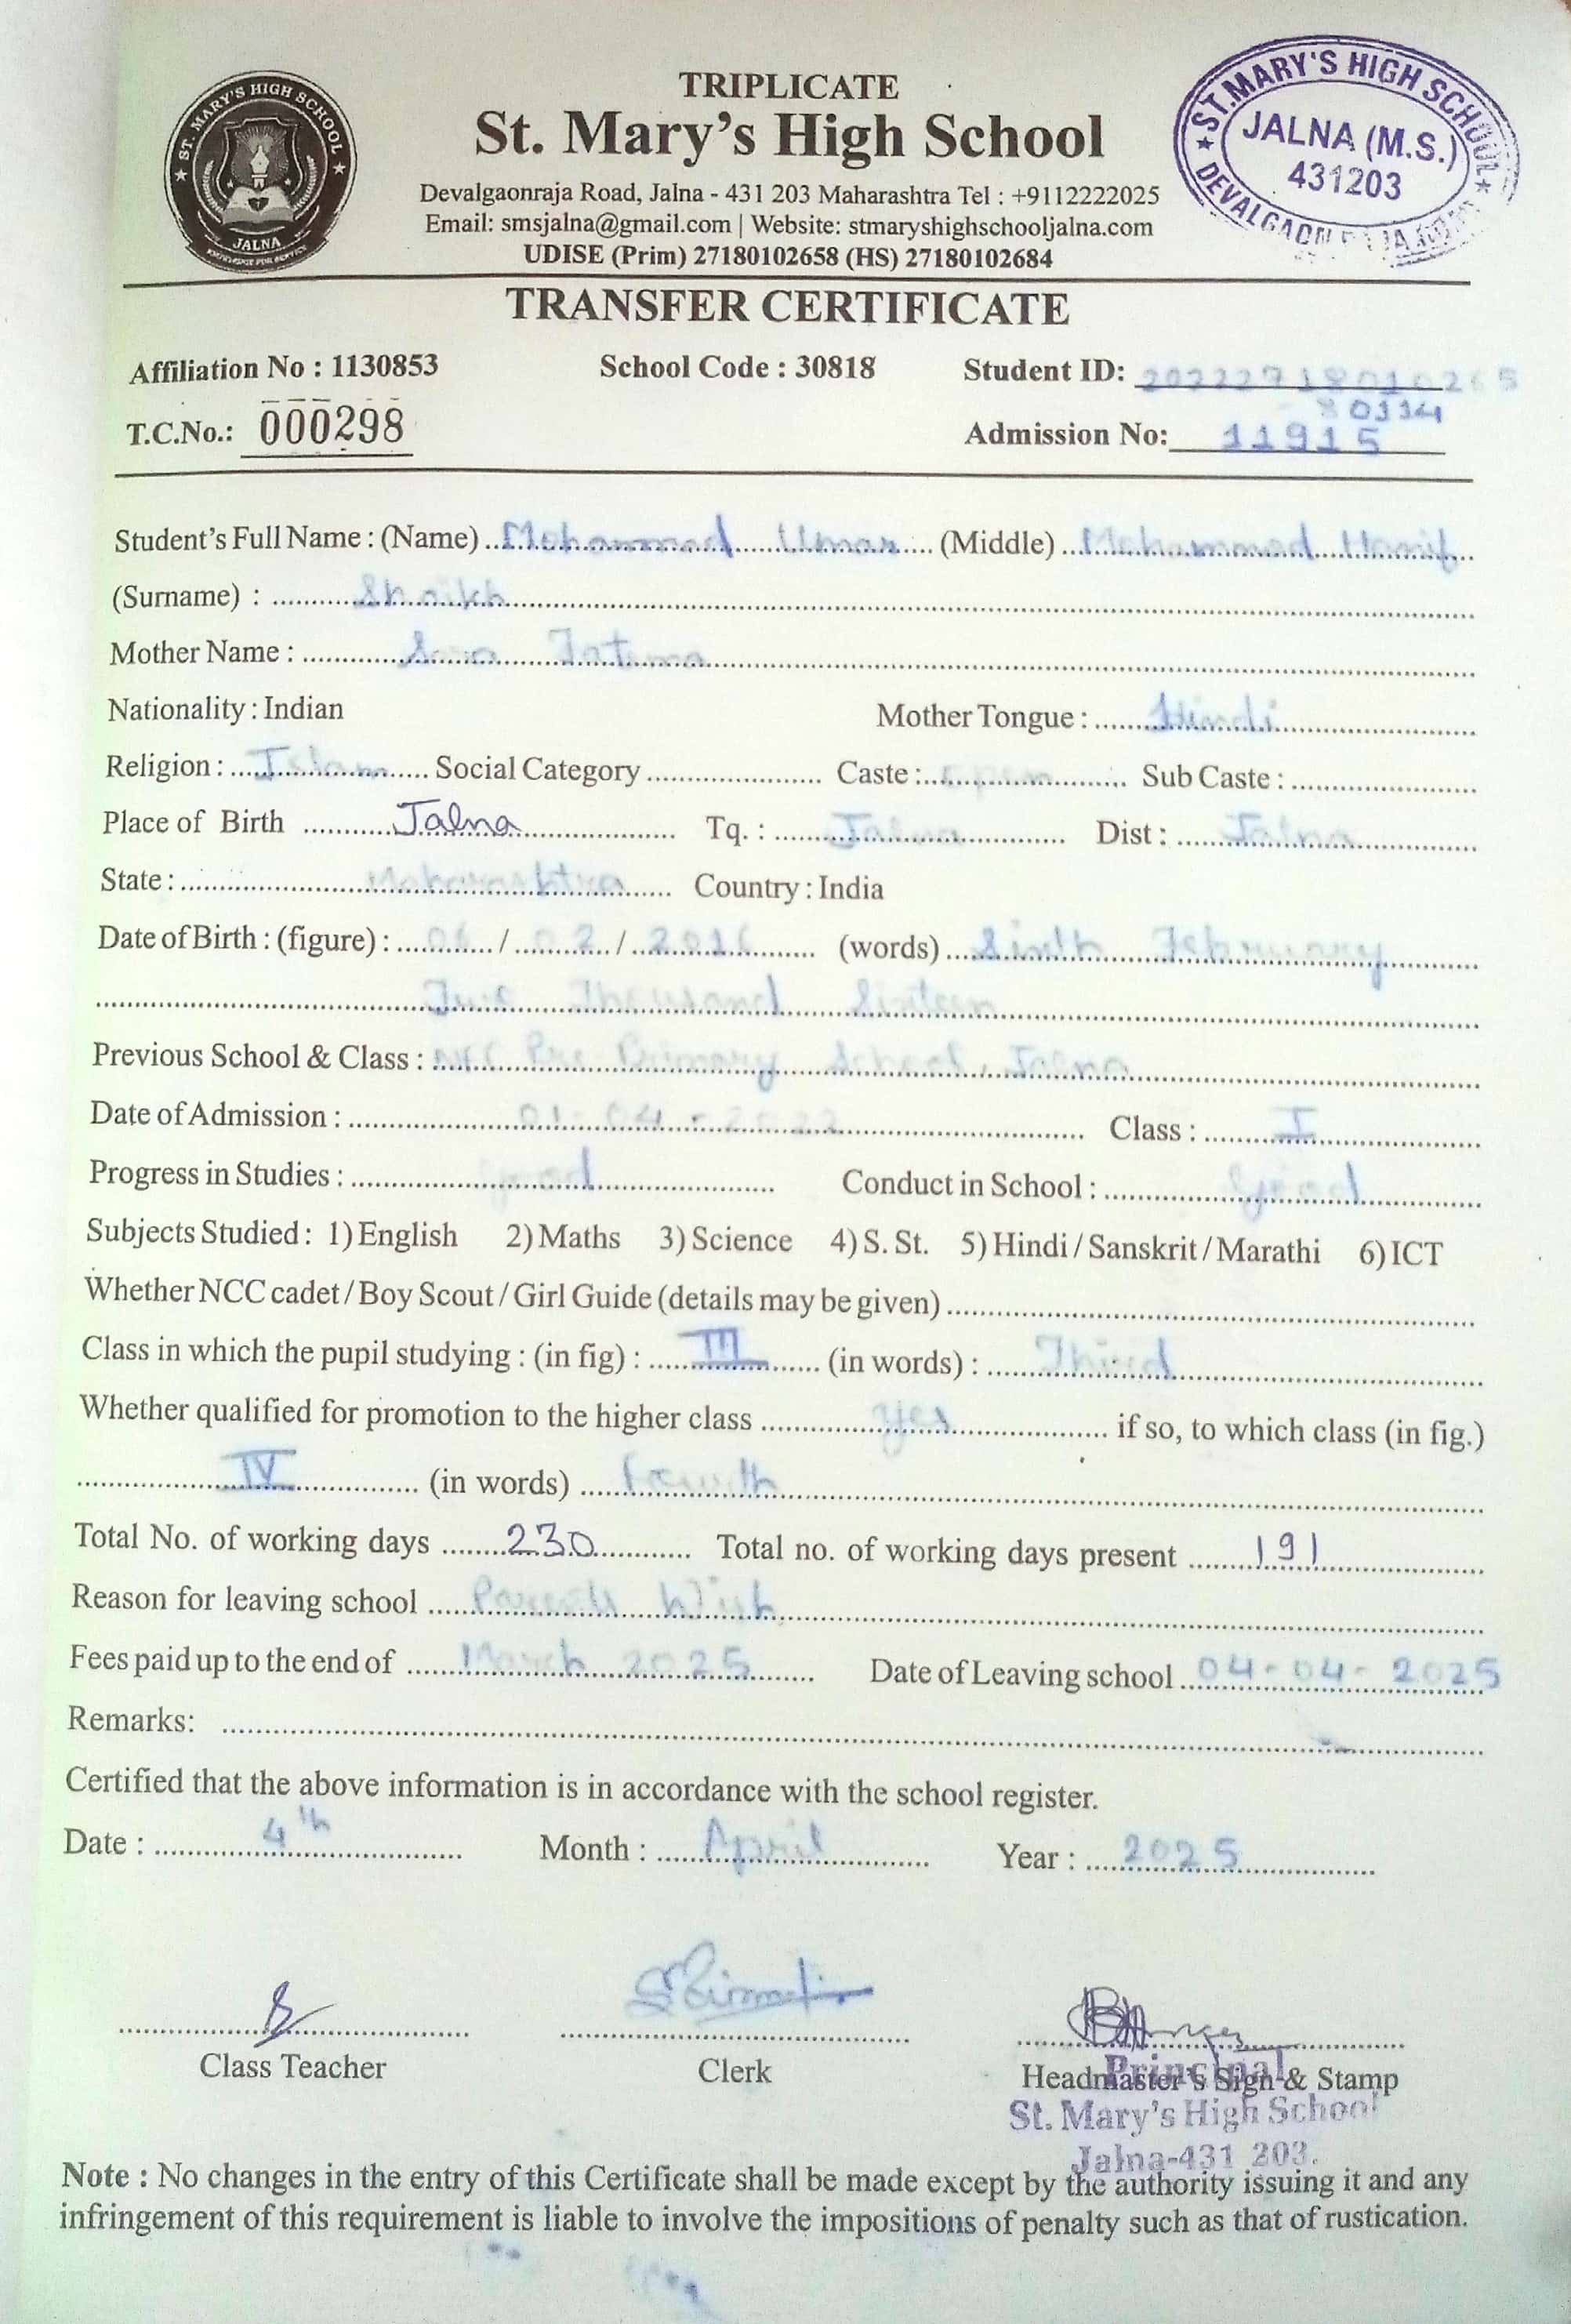 TRIPLICATE
St. Mary's High School
Devalgaonraja Road, Jalna - 431 203 Maharashtra Tel : +9112222025
Email: smsjalna@gmail.com | Website: stmaryshighschooljalna.com
UDISE (Prim) 27180102658 (HS) 27180102684
ST. MARY'S HIGH SCHOOL
JALNA
ST. MARY'S HIGH SCHOOL
JALNA (M.S.)
431203
TRANSFER CERTIFICATE
Affiliation No : 1130853 School Code : 30818 Student ID:
T.C.No.: 000298 Admission No: 11915
Student's Full Name : (Name) Mohammad Umar (Middle) Mohammad Hanif
(Surname) : Shaikh
Mother Name : Fatema
Nationality : Indian Mother Tongue : Hindi
Religion : Islam Social Category Caste : open Sub Caste :
Place of Birth Jalna Tq. : Jalna Dist : Jalna
State : Maharashtra Country : India
Date of Birth : (figure) : 06 / 02 / 2016 (words) Sixth February
Two Thousand Sixteen
Previous School & Class : Pre Primary School, Jalna
Date of Admission : 01-04-2022 Class : I
Progress in Studies : good Conduct in School : good
Subjects Studied : 1) English 2) Maths 3) Science 4) S. St. 5) Hindi / Sanskrit / Marathi 6) ICT
Whether NCC cadet / Boy Scout / Girl Guide (details may be given)
Class in which the pupil studying : (in fig) : III (in words) : Third
Whether qualified for promotion to the higher class yes if so, to which class (in fig.)
IV (in words) Fourth
Total No. of working days 230 Total no. of working days present 191
Reason for leaving school Parents Wish
Fees paid up to the end of March 2025 Date of Leaving school 04-04-2025
Remarks:
Certified that the above information is in accordance with the school register.
Date : 4th Month : April Year : 2025
Class Teacher Clerk Headmaster's Sign & Stamp
Principal
St. Mary's High School
Jalna-431 203.
Note : No changes in the entry of this Certificate shall be made except by the authority issuing it and any
infringement of this requirement is liable to involve the impositions of penalty such as that of rustication.